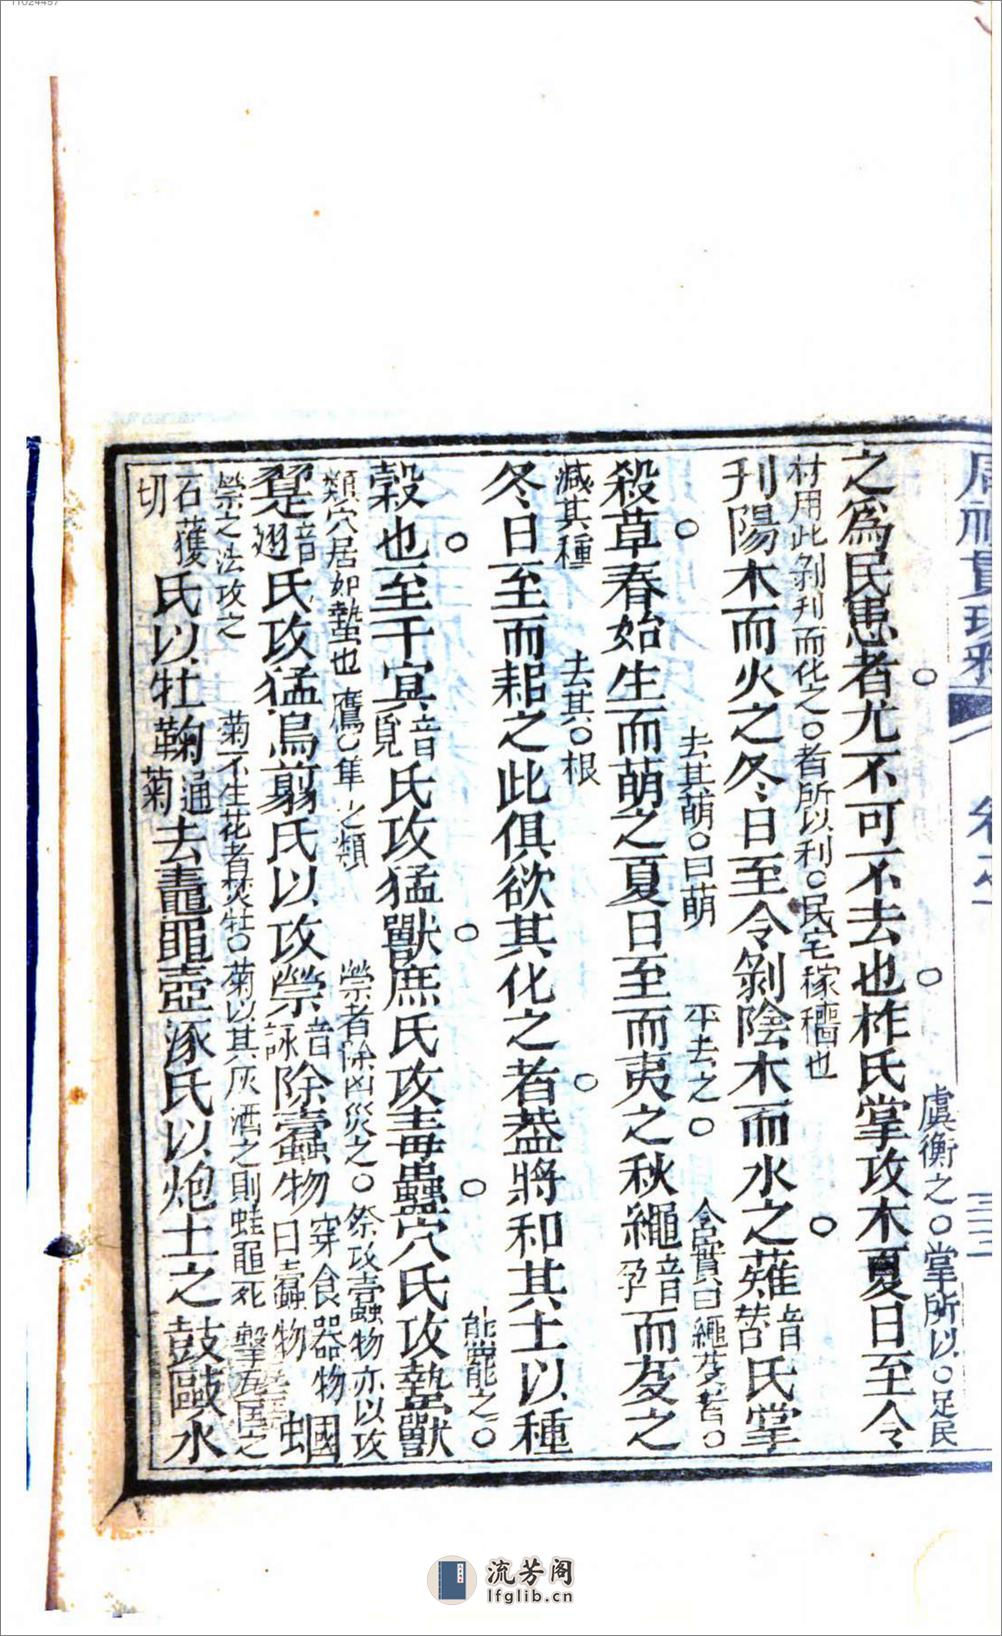 周禮貫珠 卷之
虞衡之○掌所以○足民
之爲民患者尤不可不去也柞氏掌攻木夏日至令
材用此剝刋而化之○者所以利○民宅稼穡也
刋陽木而火之冬日至令剝陰木而水之薙音
氏掌
去其萌○曰萌 平去之○ 含實曰繩芟者○
殺草春始生而萌之夏日至而夷之秋繩音孕而芟之
減其種 去其○根
冬日至而耜之此俱欲其化之者葢將和其土以種
能罷之○
穀也至于㝠音覓氏攻猛獸庶氏攻毒蠱穴氏攻蟄獸
類穴居如蟄也 鷹○隼之類 禜者除凶災之○祭攻蠧物亦以攻
翨音翅氏攻猛鳥翦氏以攻禜音詠除蠧物穿食器物曰蠧物蟈
禜之法攻之 菊不生花者焚牡○菊以其灰洒之則蛙黽死 擊五○之
古獲切氏以牡鞠通菊去鼃黽壺涿氏以炮土之鼓敺水
流芳阁
lfglib.cn